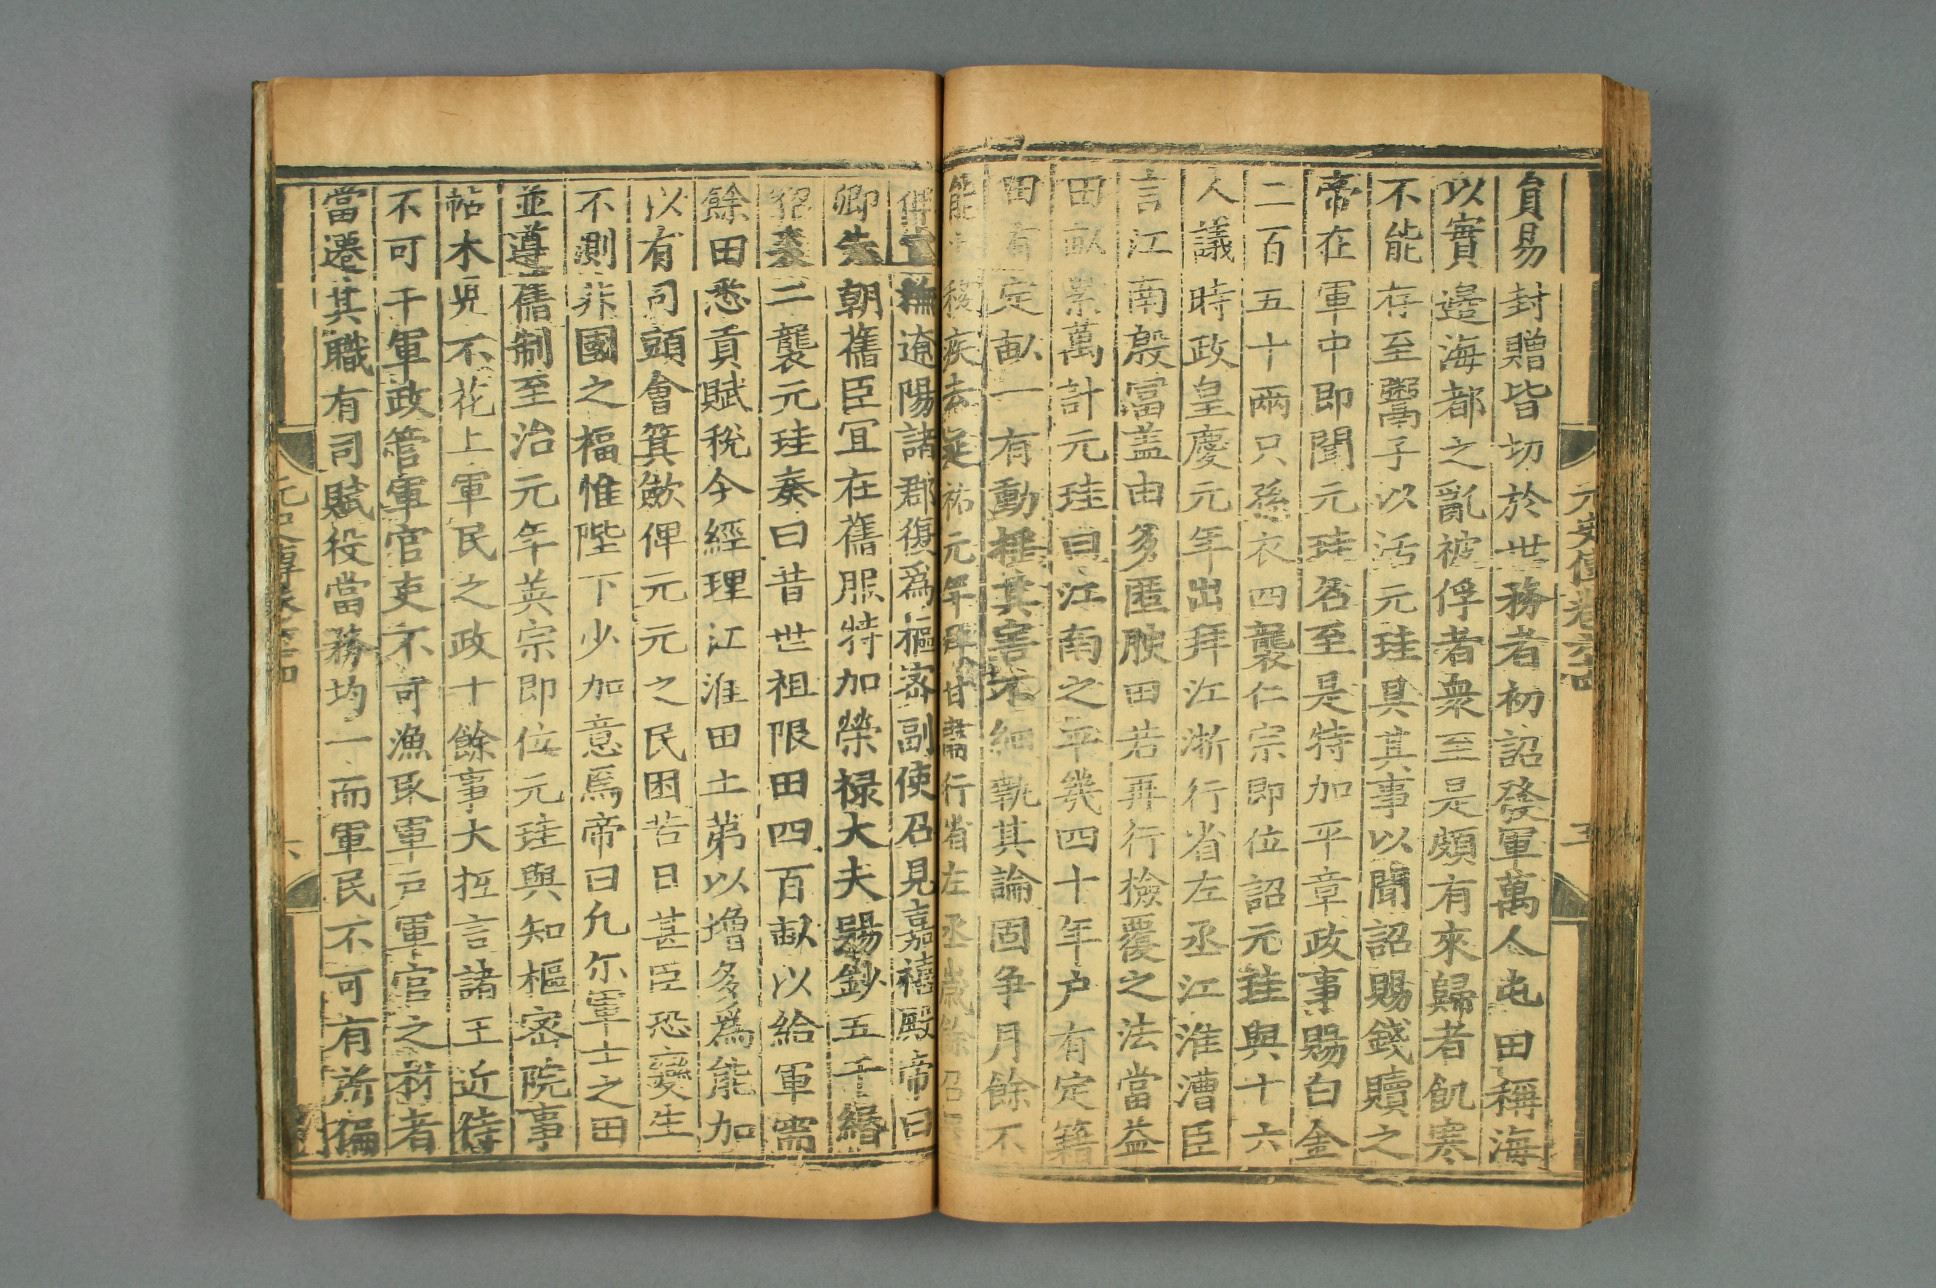 元史傳卷六十四 五
貟易封贈皆切於世務者初詔發軍萬人屯田稱海
以實邉海都之亂被俘者衆至是頗有來歸者飢寒
不能存至鬻子以活元珪具其事以聞詔賜錢贖之
帝在軍中即聞元珪名至是特加平章政事賜白金
二百五十兩只孫衣四襲仁宗即位詔元珪與十六
人議時政皇慶元年出拜江浙行省左丞江淮漕臣
言江南殷富盖由多匿腴田若再行檢覆之法當益
田畝累萬計元珪曰江南之平幾四十年户有定籍
田有定畝一有動揺其害不細執其論固争月餘不
能 移疾去延祐元年拜甘肅行省左丞歲餘召
遼陽諸郡復爲樞宻副使召見嘉禧殿帝曰
卿先朝舊臣冝在舊服特加榮禄大夫賜鈔五千緡
貂裘二襲元珪奏曰昔世祖限田四百畝以給軍需
餘田悉貢賦稅今經理江淮田土第以増多爲能加
以有司頭會箕斂俾元元之民困苦日甚臣恐變生
不測非國之福惟陛下少加意焉帝曰凢尓軍士之田
並遵舊制至治元年英宗即位元珪與知樞宻院事
帖木兒不花上軍民之政十餘事大抵言諸王近侍
不可干軍政管軍官吏不可漁取軍戸軍官之材者
當遷其職有司賦役當務均一而軍民不可有所徧
元史傳卷六十四 六